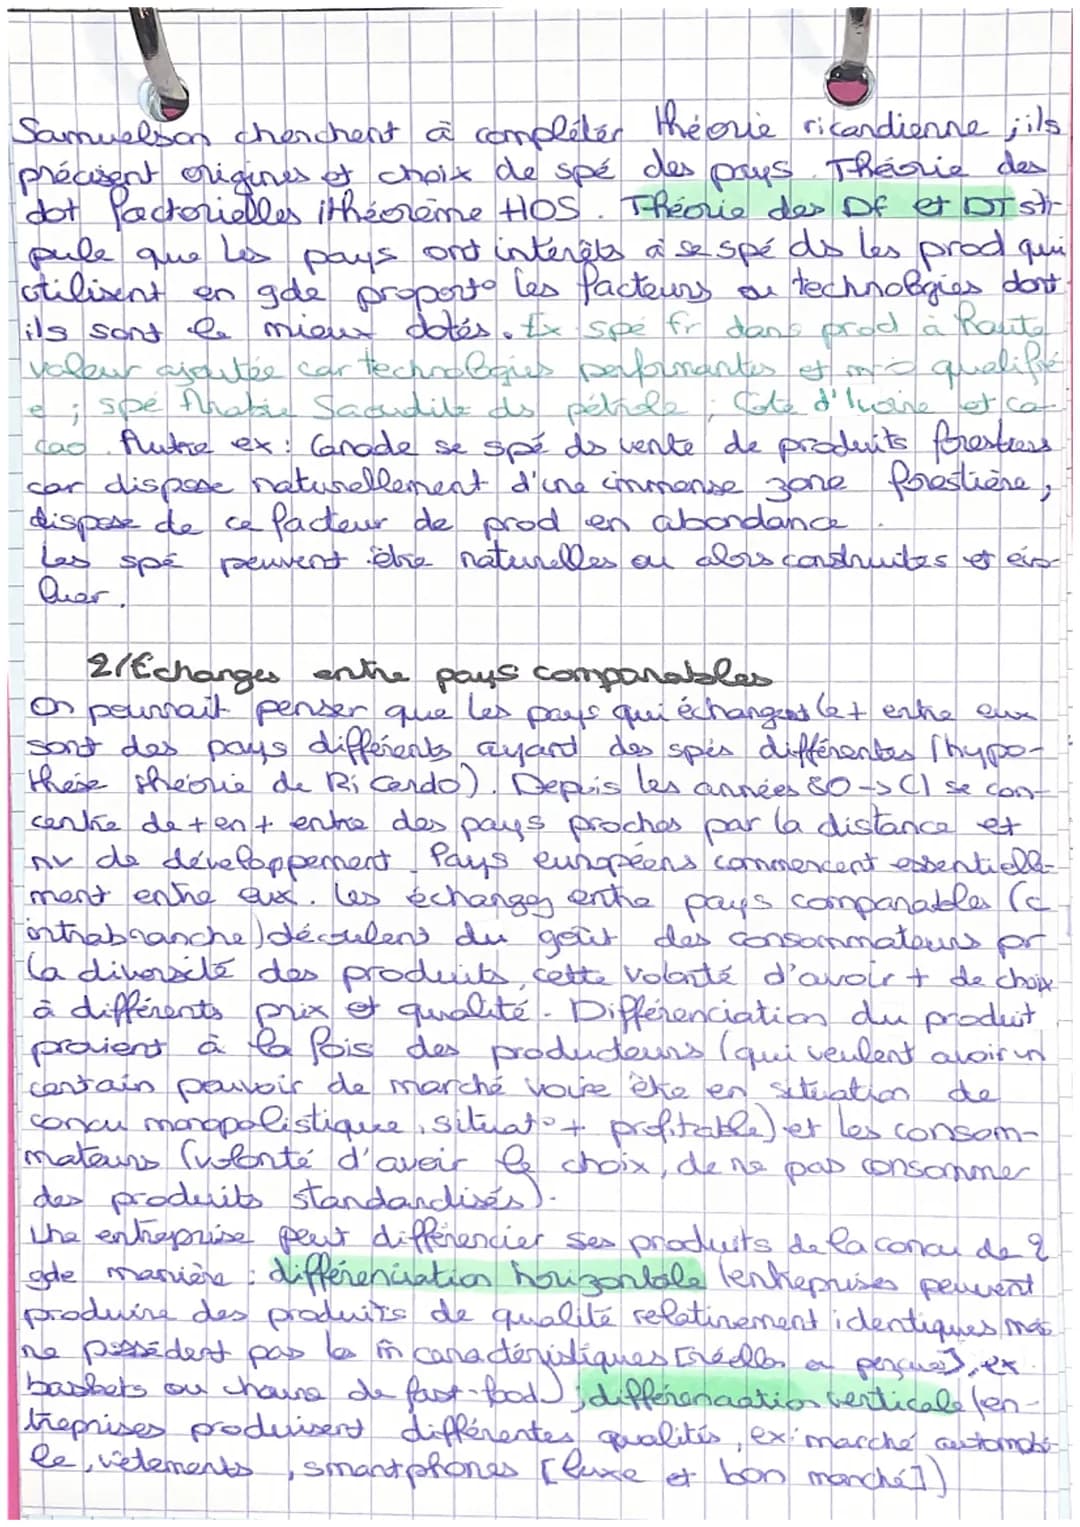 Samuelson cherchent à compléter théorie ricardienne ; ils
précisent origines et choix de spé des pays. Théorie des
dot factorielles : théorème HOS. Théorie des DF et DT sti-
pule que les pays ont intérêts à se spé ds les prod qui
utilisent en gde proport° les facteurs ou technologies dont
ils sont le mieux dotés. Ex spé fr dans prod à haute
valeur ajoutée car technologies performantes et m-d'o qualifié
e ; spé Arabie Saoudite ds pétrole ; Côte d'Ivoire et ca-
cao. Autre ex : Canada se spé ds vente de produits forestiers
car dispose naturellement d'une immense zone forestière,
dispose de ce facteur de prod en abondance.
Les spé peuvent être naturelles ou alors construites et évo-
luer.
2/ Echanges entre pays comparables
On pourrait penser que les pays qui échangent le + entre eux
sont des pays différents ayant des spés différentes (hypo-
thèse théorie de Ricardo). Depuis les années 80 -> CI se con-
centre de + en + entre des pays proches par la distance et
nv de développement. Pays européens commercent essentielle-
ment entre eux. Les échanges entre pays comparables (c
intrabranche) découlent du goût des consommateurs pr
la diversité des produits, cette volonté d'avoir + de choix
à différents prix et qualité. Différenciation du produit
provient à la fois des producteurs (qui veulent avoir un
certain pouvoir de marché voire être en situation de
concu monopolistique, situat° + profitable) et les consom-
mateurs (volonté d'avoir le choix, de ne pas consommer
des produits standardisés).
Une entreprise peut différencier ses produits de la concu de 2
gde manière : différenciation horizontale (entreprises peuvent
produire des produits de qualité relativement identiques mais
ne possèdent pas les m̂ caractéristiques [réelles ou perçues], ex
baskets ou chaine de fast-food) ; différenciation verticale (en-
treprises produisent différentes qualités, ex : marché automobi-
le, vêtements, smartphones [luxe et bon marché])